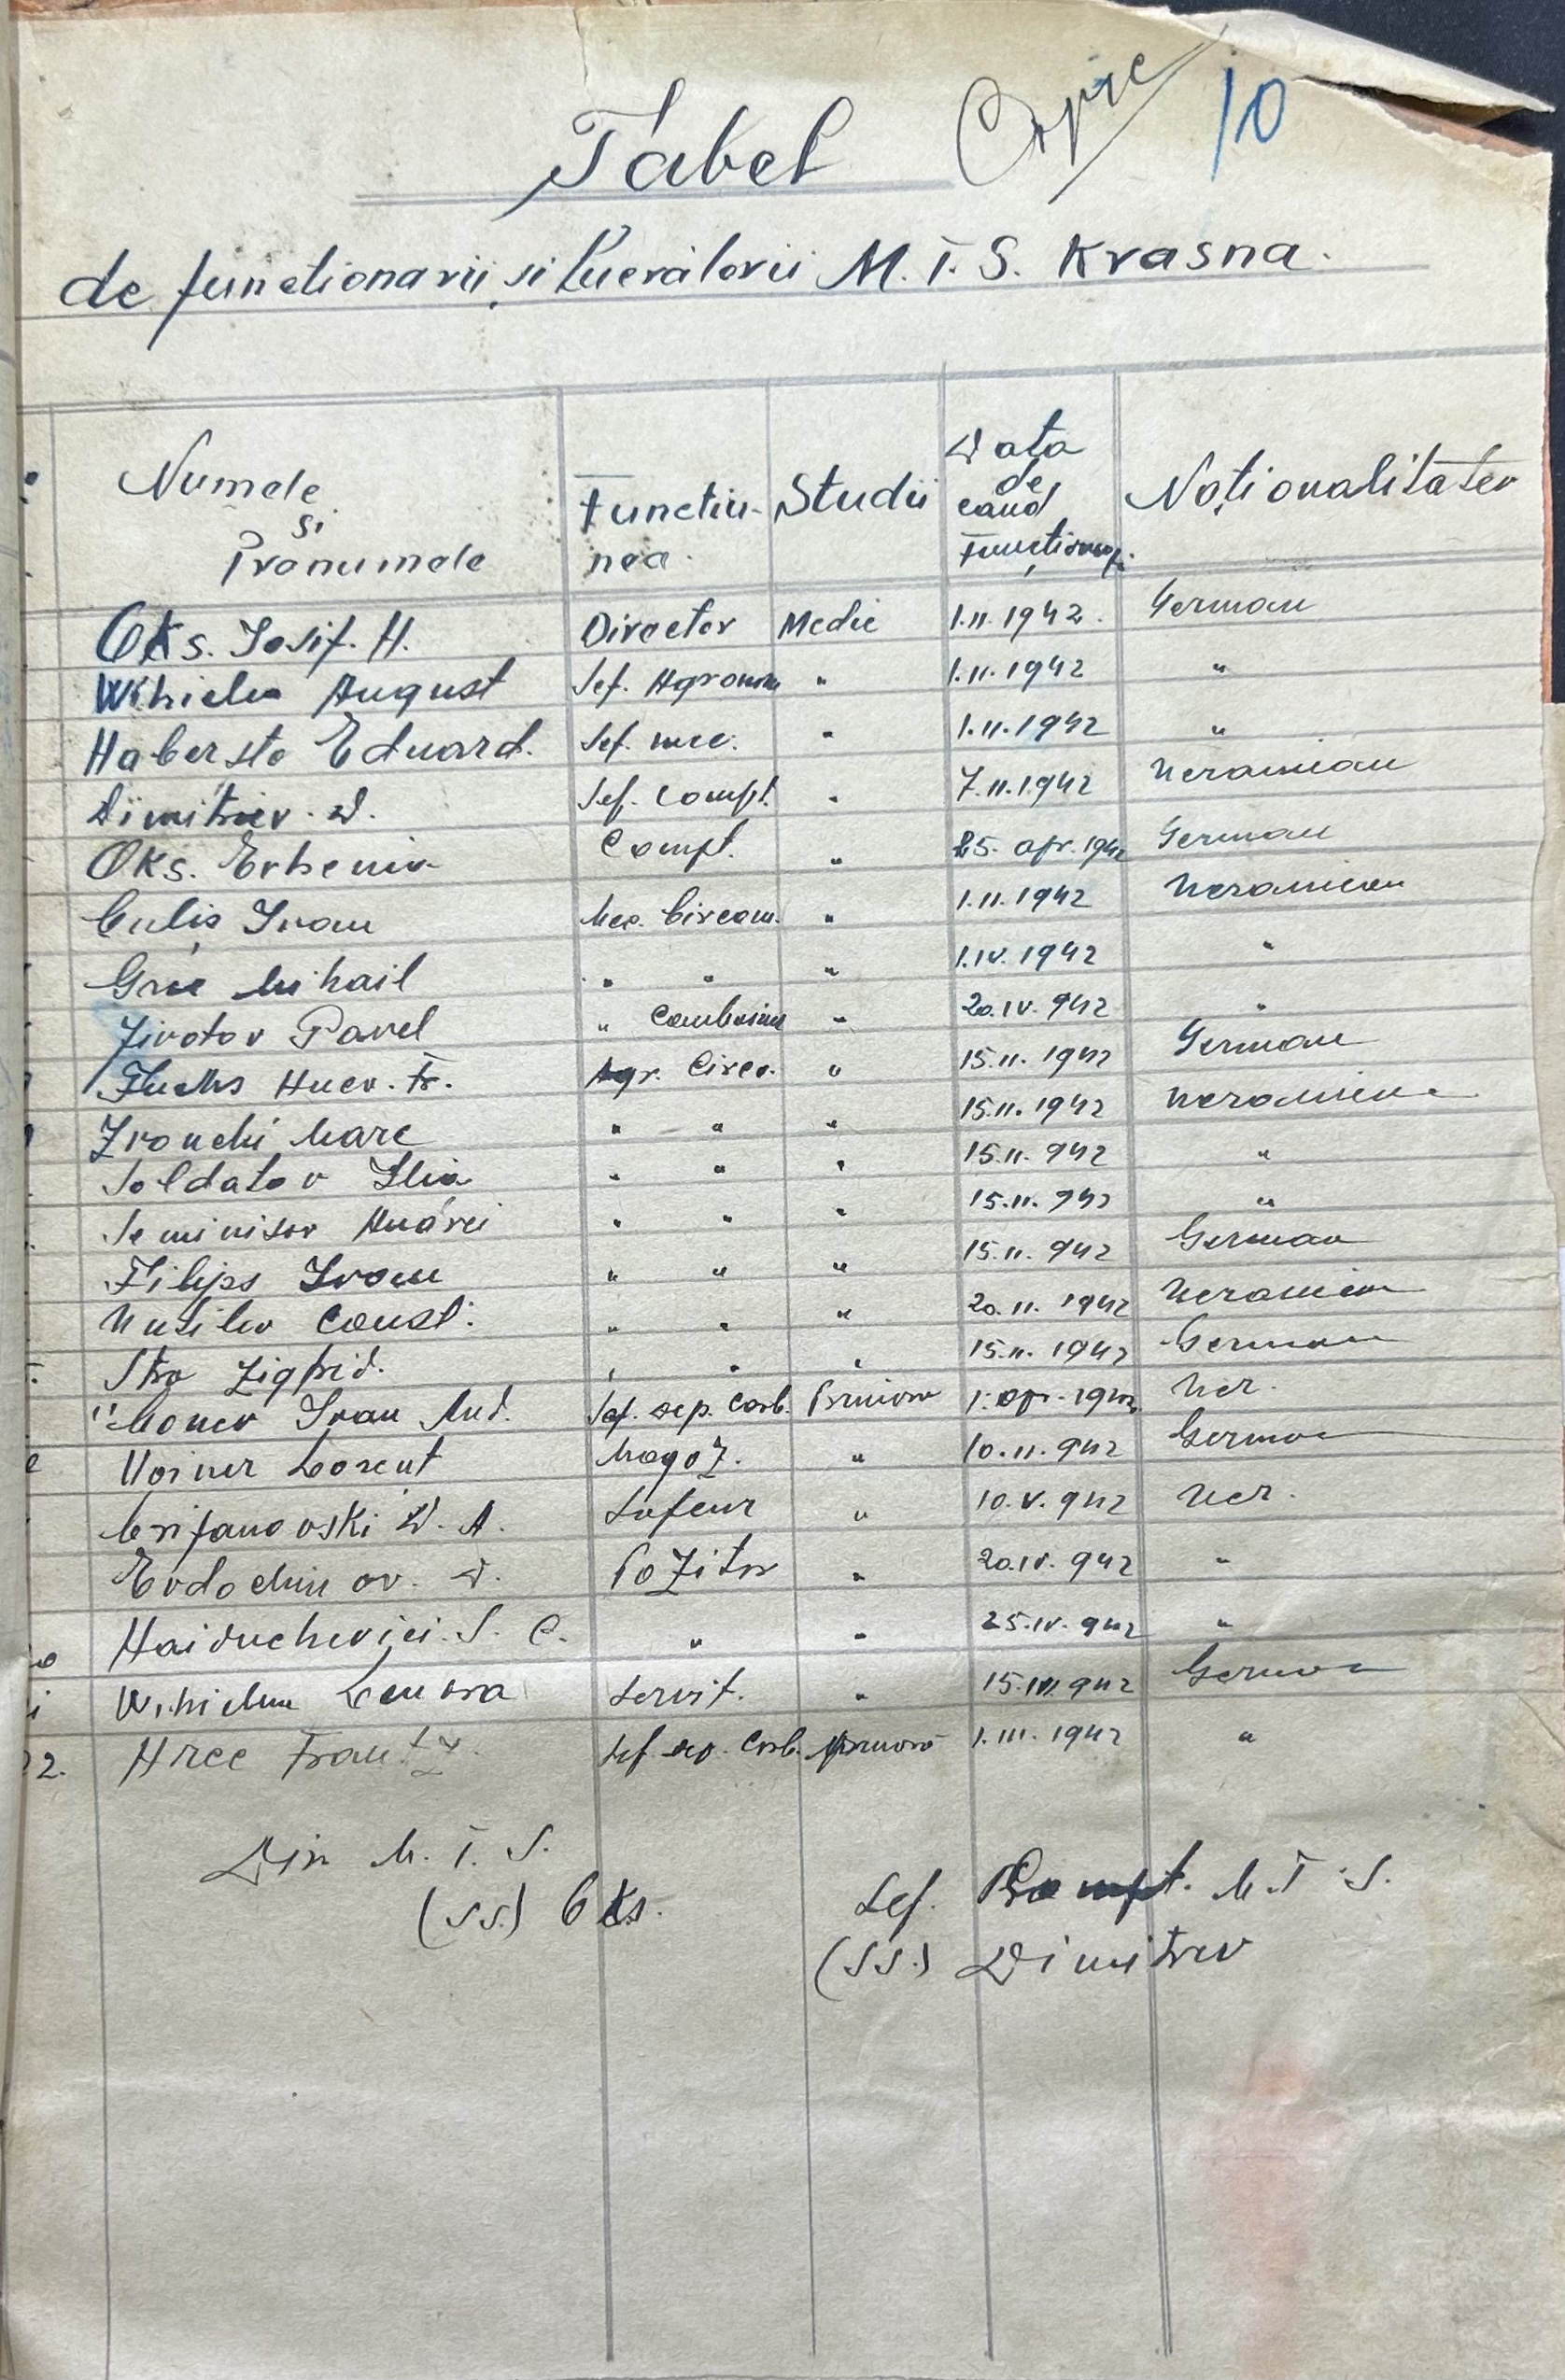 Copie 10
Tabel
de functionarii și Lucrătorii M.T.S. Krasna.
Numele și Pronumele Functiunea Studii Data de cand Funcționeaz. Naționalitatea
Oks. Iosif. H. Director Medie 1.II.1942. German
Wihielm August Sef. Agronom " 1.II.1942 "
Habersto Eduard. Sef. mec. " 1.II.1942 "
Dimitriev. D. Sef. Compt. " 7.II.1942 Ucrainian
Oks. Evhenia Compt. " 25. apr. 1942 German
Culiș Ivan Mec. Circom. " 1.II.1942 Ucrainian
Mihail " " " 1.IV.1942 "
Jivotov Pavel " Combain " 20.IV.942 "
Fuchs Agr. Circ. " 15.II.1942 German
Marc " " " 15.II.1942 Ucrainian
Soldatov Ilia " " " 15.II.942 "
Seminisov Andrei " " " 15.II.942 "
Filips Ivan " " " 15.II.942 German
Const. " " " 20.II.1942 Ucrainian
Zigfrid. " " " 15.II.1942 German
Ivan And. Sef. dep. Carb. Primara 1. apr. 1942 Ucr.
Lorent Magaz. " 10.II.942 German
D. A. Sofeur " 10.V.942 Ucr.
Evdochimov. D. Pazitor " 20.IV.942 "
S. C. " " 25.IV.942 "
Wihielm Servit. " 942 German
22. Frantz. Sef. dep. Carb. Primara 1.III.1942 "
Dir M.T.S.
(SS) Oks.
Sef. Compt. M.T.S.
(SS.) Dimitrev